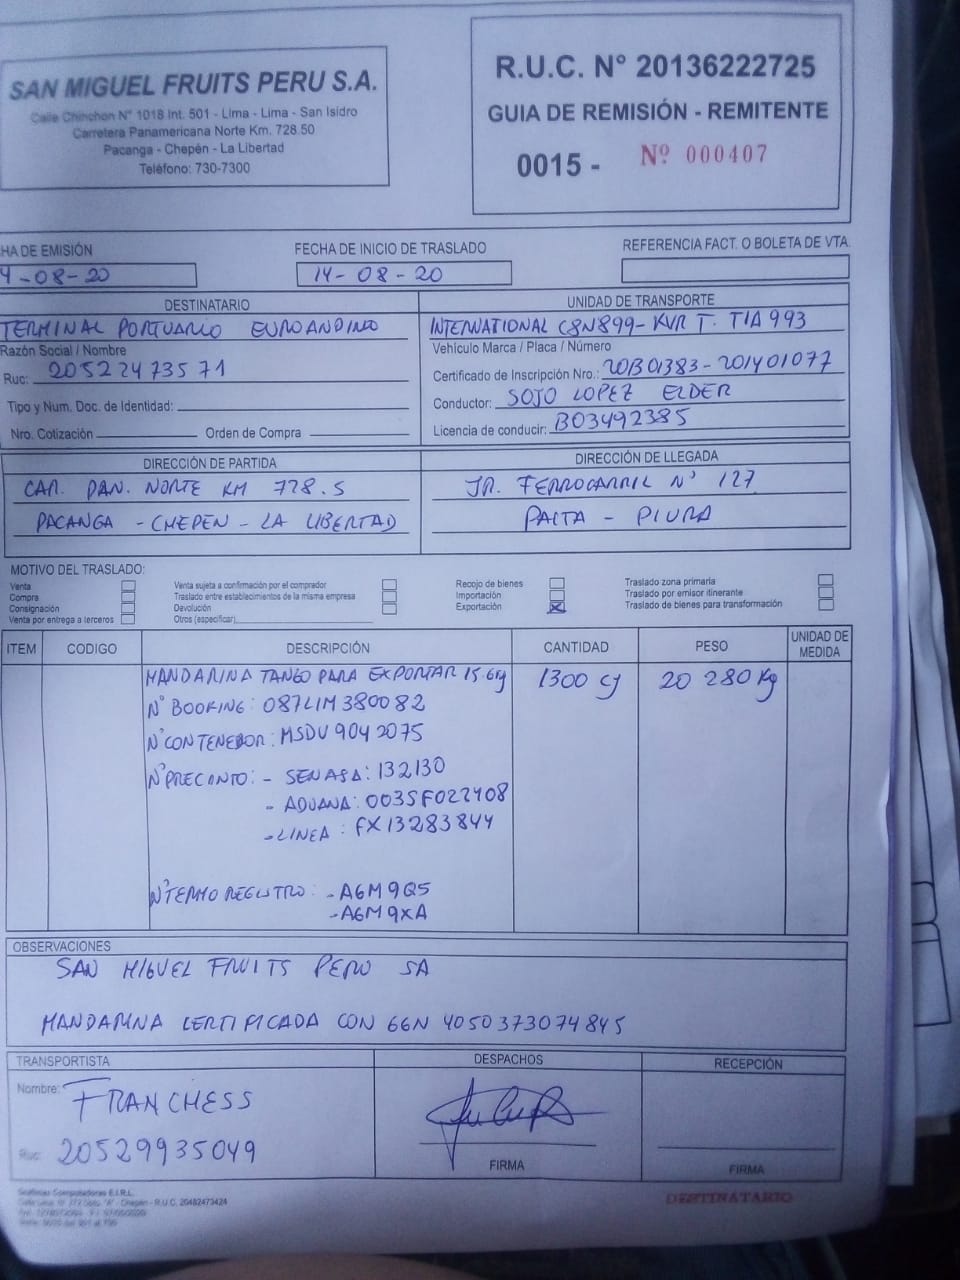 SAN MIGUEL FRUITS PERU S.A.
Calle Chinchon N° 1018 Int. 501 - Lima - Lima - San Isidro
Carretera Panamericana Norte Km. 728.50
Pacanga - Chepén - La Libertad
Teléfono: 730-7300
R.U.C. N° 20136222725
GUIA DE REMISIÓN - REMITENTE
0015 - Nº 000407
HA DE EMISIÓN
4-08-20
FECHA DE INICIO DE TRASLADO
14-08-20
REFERENCIA FACT. O BOLETA DE VTA.
DESTINATARIO
TERMINAL PORTUARIO EUROANDINO
Razón Social / Nombre
Ruc: 20522473571
Tipo y Num. Doc. de Identidad:
Nro. Cotización Orden de Compra
UNIDAD DE TRANSPORTE
INTERNATIONAL C8N899-KVR T. TIA993
Vehículo Marca / Placa / Número
Certificado de Inscripción Nro.: 20B01383-201401077
Conductor: SOJO LOPEZ ELDER
Licencia de conducir: B03492385
DIRECCIÓN DE PARTIDA
CAR. PAN. NORTE KM 728.5
PACANGA - CHEPEN - LA LIBERTAD
DIRECCIÓN DE LLEGADA
JR. FERROCARRIL N° 127
PAITA - PIURA
MOTIVO DEL TRASLADO:
Venta
Compra
Consignación
Venta por entrega a terceros
Venta sujeta a confirmación por el comprador
Traslado entre establecimientos de la misma empresa
Devolución
Otros (especificar)
Recojo de bienes
Importación
Exportación X
Traslado zona primaria
Traslado por emisor itinerante
Traslado de bienes para transformación
ITEM CODIGO DESCRIPCIÓN CANTIDAD PESO UNIDAD DE MEDIDA
MANDARINA TANGO PARA EXPORTAR 15.6Kg 1300 CJ 20 280 Kg
N° BOOKING: 087LIM380082
N° CONTENEDOR: MSDU9042075
N° PRECINTO: - SENASA: 132130
- ADUANA: 003SF022408
- LINEA: FX13283844
N° TERMO REGISTRO: - A6M9Q5
- A6M9XA
OBSERVACIONES
SAN MIGUEL FRUITS PERU SA
MANDARINA CERTIFICADA CON GGN 4050373074845
TRANSPORTISTA
Nombre: FRANCHESS
Ruc: 20529935049
DESPACHOS
FIRMA
RECEPCIÓN
FIRMA
R.U.C. 20482473424
DESTINATARIO